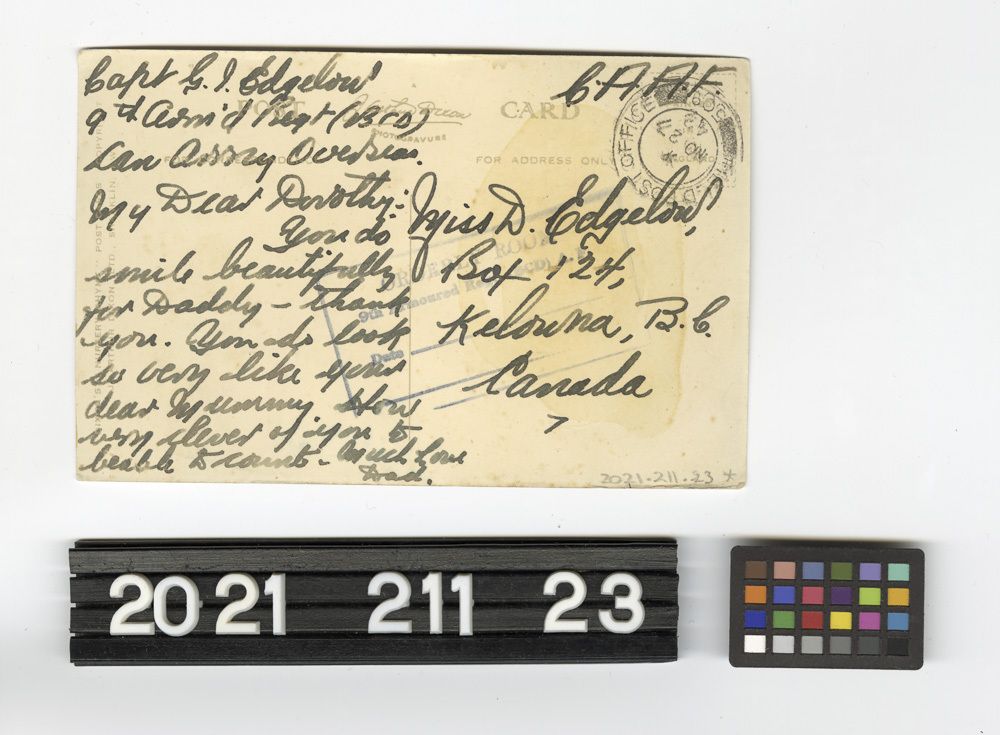 Capt G. J. Edgelow
9th Arm'd Regt (BCD)
Can Army Overseas.
C.A.P.F.
POST CARD
PHOTOGRAVURE
FOR ADDRESS ONLY
POST OFFICE
My Dear Dorothy:-
You do
smile beautifully
for Daddy - Thank
you. You do look
so very like your
dear Mummy. How
very clever of you to
be able to count - Much Love
Dad.
Miss D. Edgelow,
Box 124,
Kelowna, B.C.
Canada
ORDERLY ROOM
9th Armoured Regt (BCD)
Date
2021.211.23 *
2021 211 23